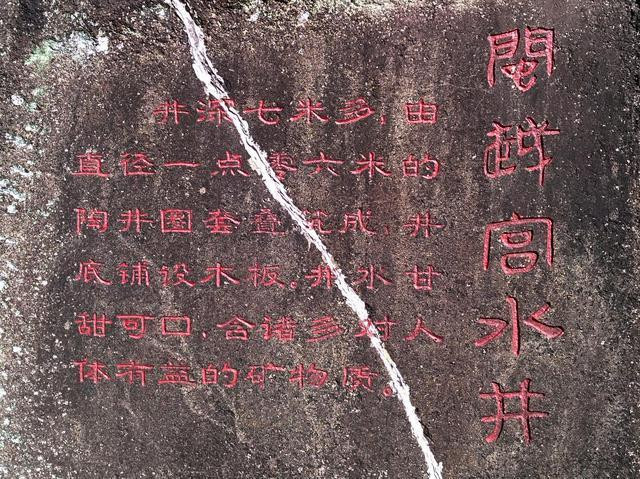 閩越宫水井
井深七米多，由
直径一点零六米的
陶井圈套叠筑成，井
底铺设木板。井水甘
甜可口，含诸多对人
体有益的矿物质。